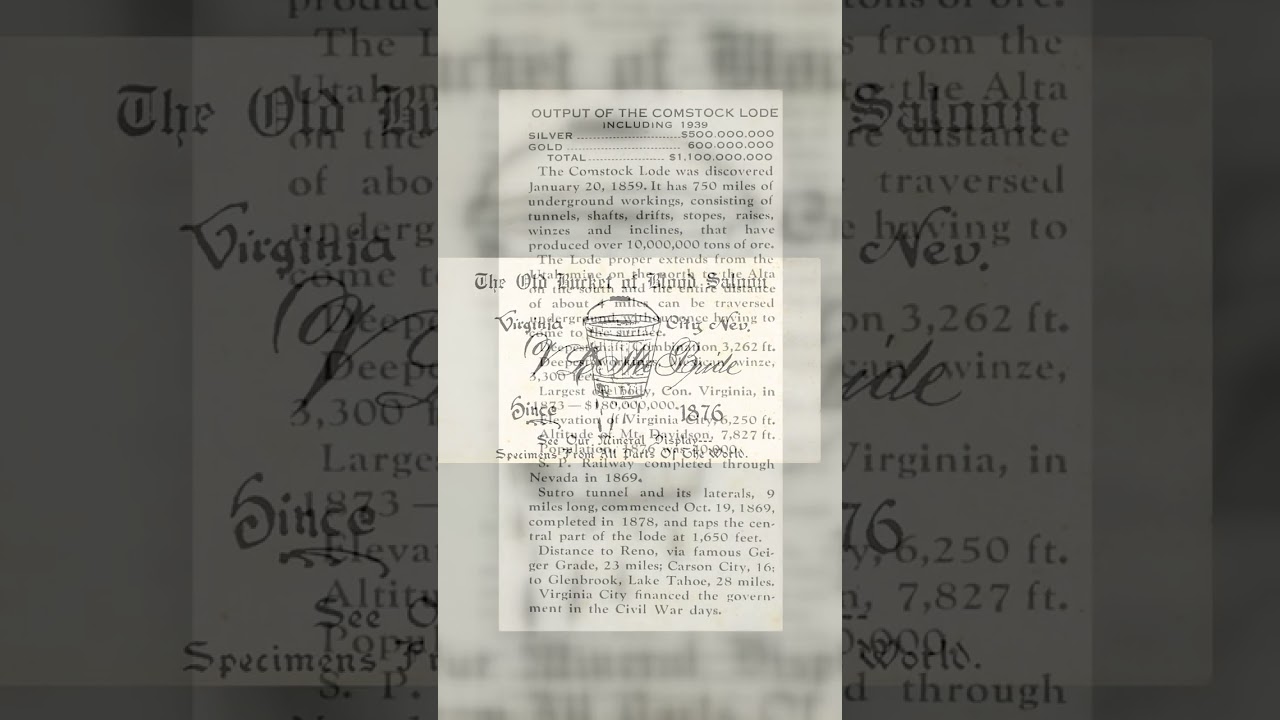 OUTPUT OF THE COMSTOCK LODE
INCLUDING 1939
SILVER $500.000.000
GOLD 600.000.000
TOTAL $1,100,000,000
The Comstock Lode was discovered
January 20, 1859. It has 750 miles of
underground workings, consisting of
tunnels, shafts, drifts, stopes, raises,
winzes and inclines, that have
produced over 10,000,000 tons of ore.
The Lode proper extends from the
Utah mine on the north to the Alta
on the south and the entire distance
of about 4 miles can be traversed
underground without once having to
come to the surface.
Deepest shaft, Combination 3,262 ft.
Deepest workings, Mexican winze,
3,300 feet.
Largest ore body, Con. Virginia, in
1873—$180,000,000.
Elevation of Virginia City, 6,250 ft.
Altitude of Mt. Davidson, 7,827 ft.
Population 1876 was 40,000.
S. P. Railway completed through
Nevada in 1869.
Sutro tunnel and its laterals, 9
miles long, commenced Oct. 19, 1869,
completed in 1878, and taps the cen-
tral part of the lode at 1,650 feet.
Distance to Reno, via famous Gei-
ger Grade, 23 miles; Carson City, 16;
to Glenbrook, Lake Tahoe, 28 miles.
Virginia City financed the govern-
ment in the Civil War days.
The Old Bucket of Blood Saloon
Virginia City Nev.
Since 1876
See Our Mineral Display---
Specimens From All Parts Of The World.